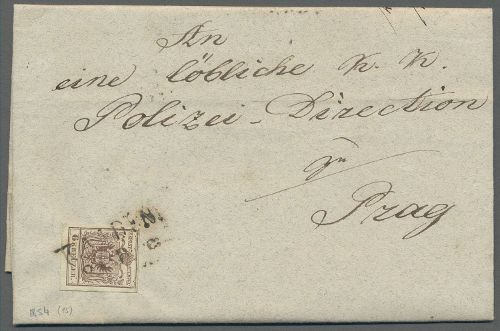 An
eine löbliche K. K.
Polizei-Direction
zu
Prag
1854 (15)